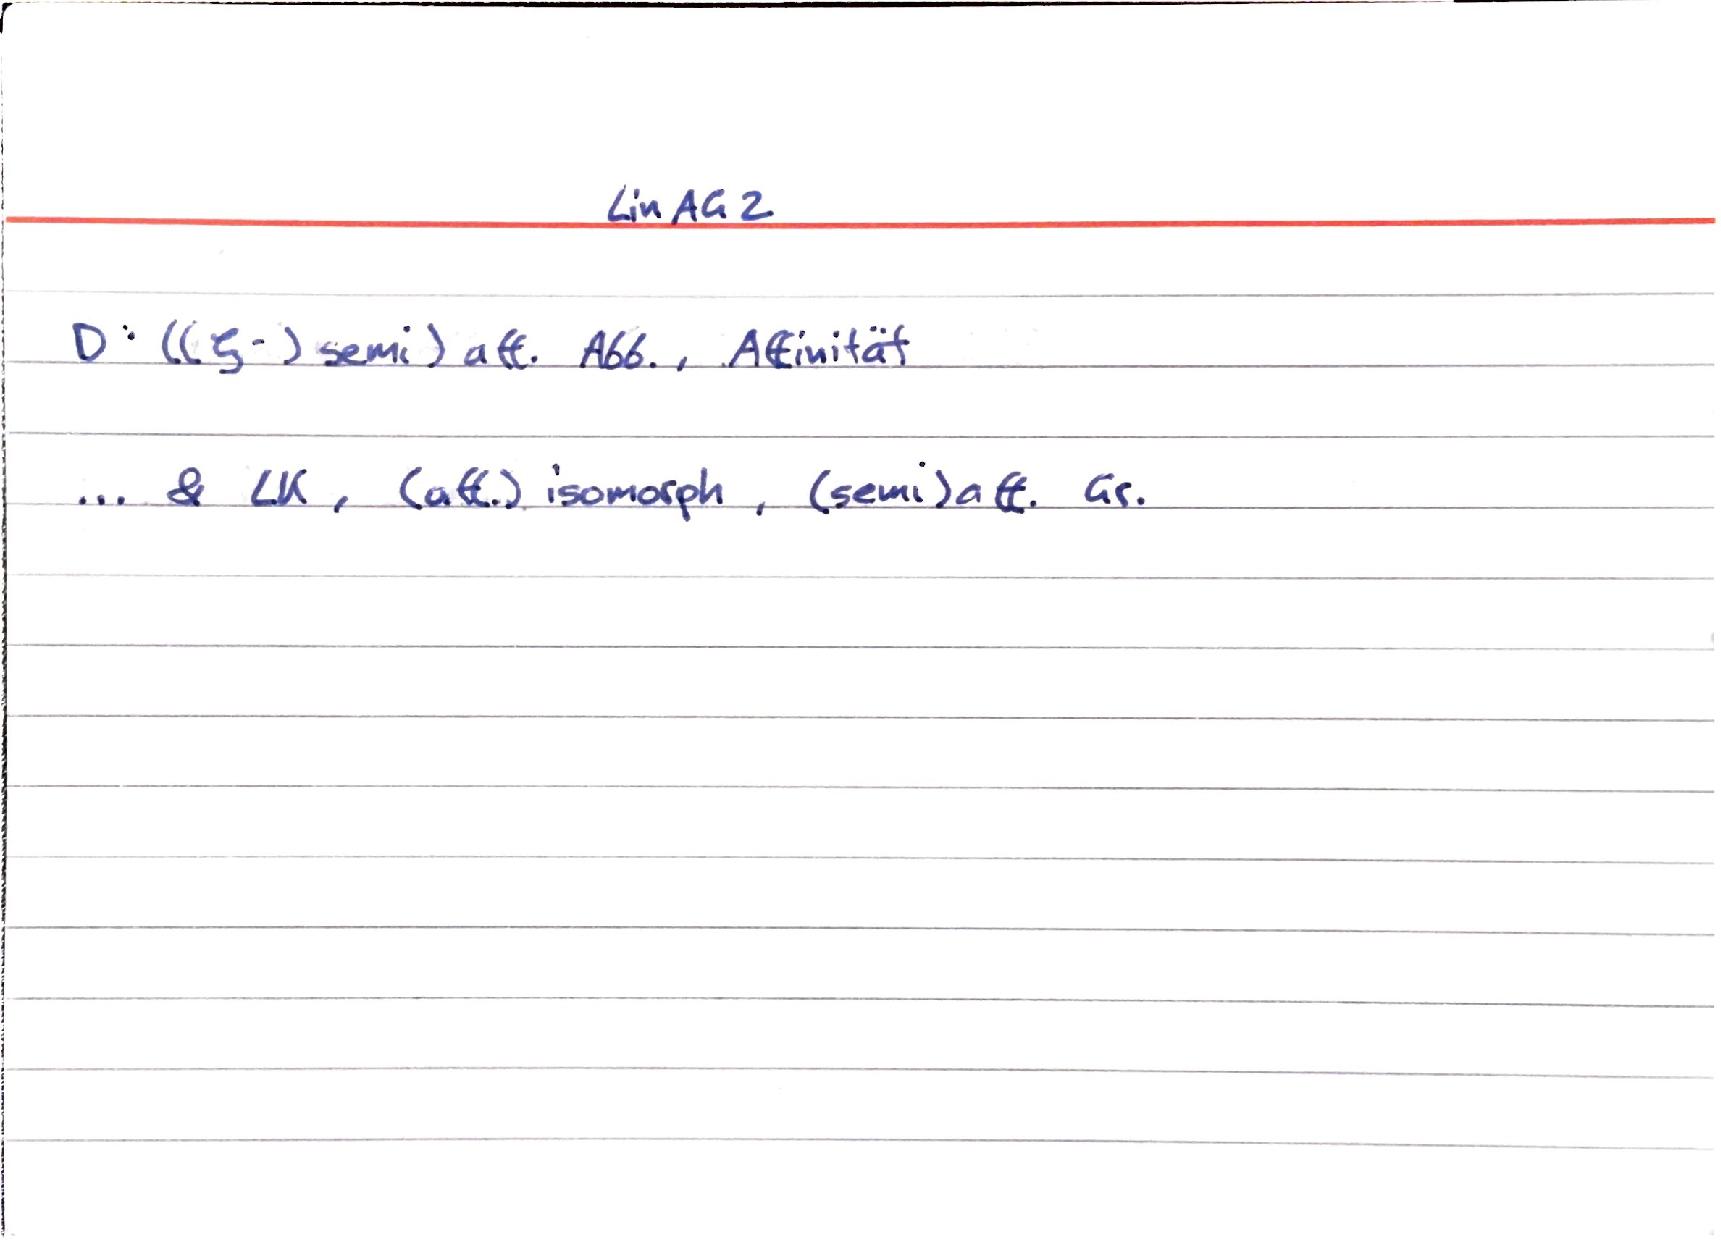 Lin AG 2
D: ((ζ-) semi) aff. Abb., Affinität
... & LK, (aff.) isomorph, (semi) aff. Gr.